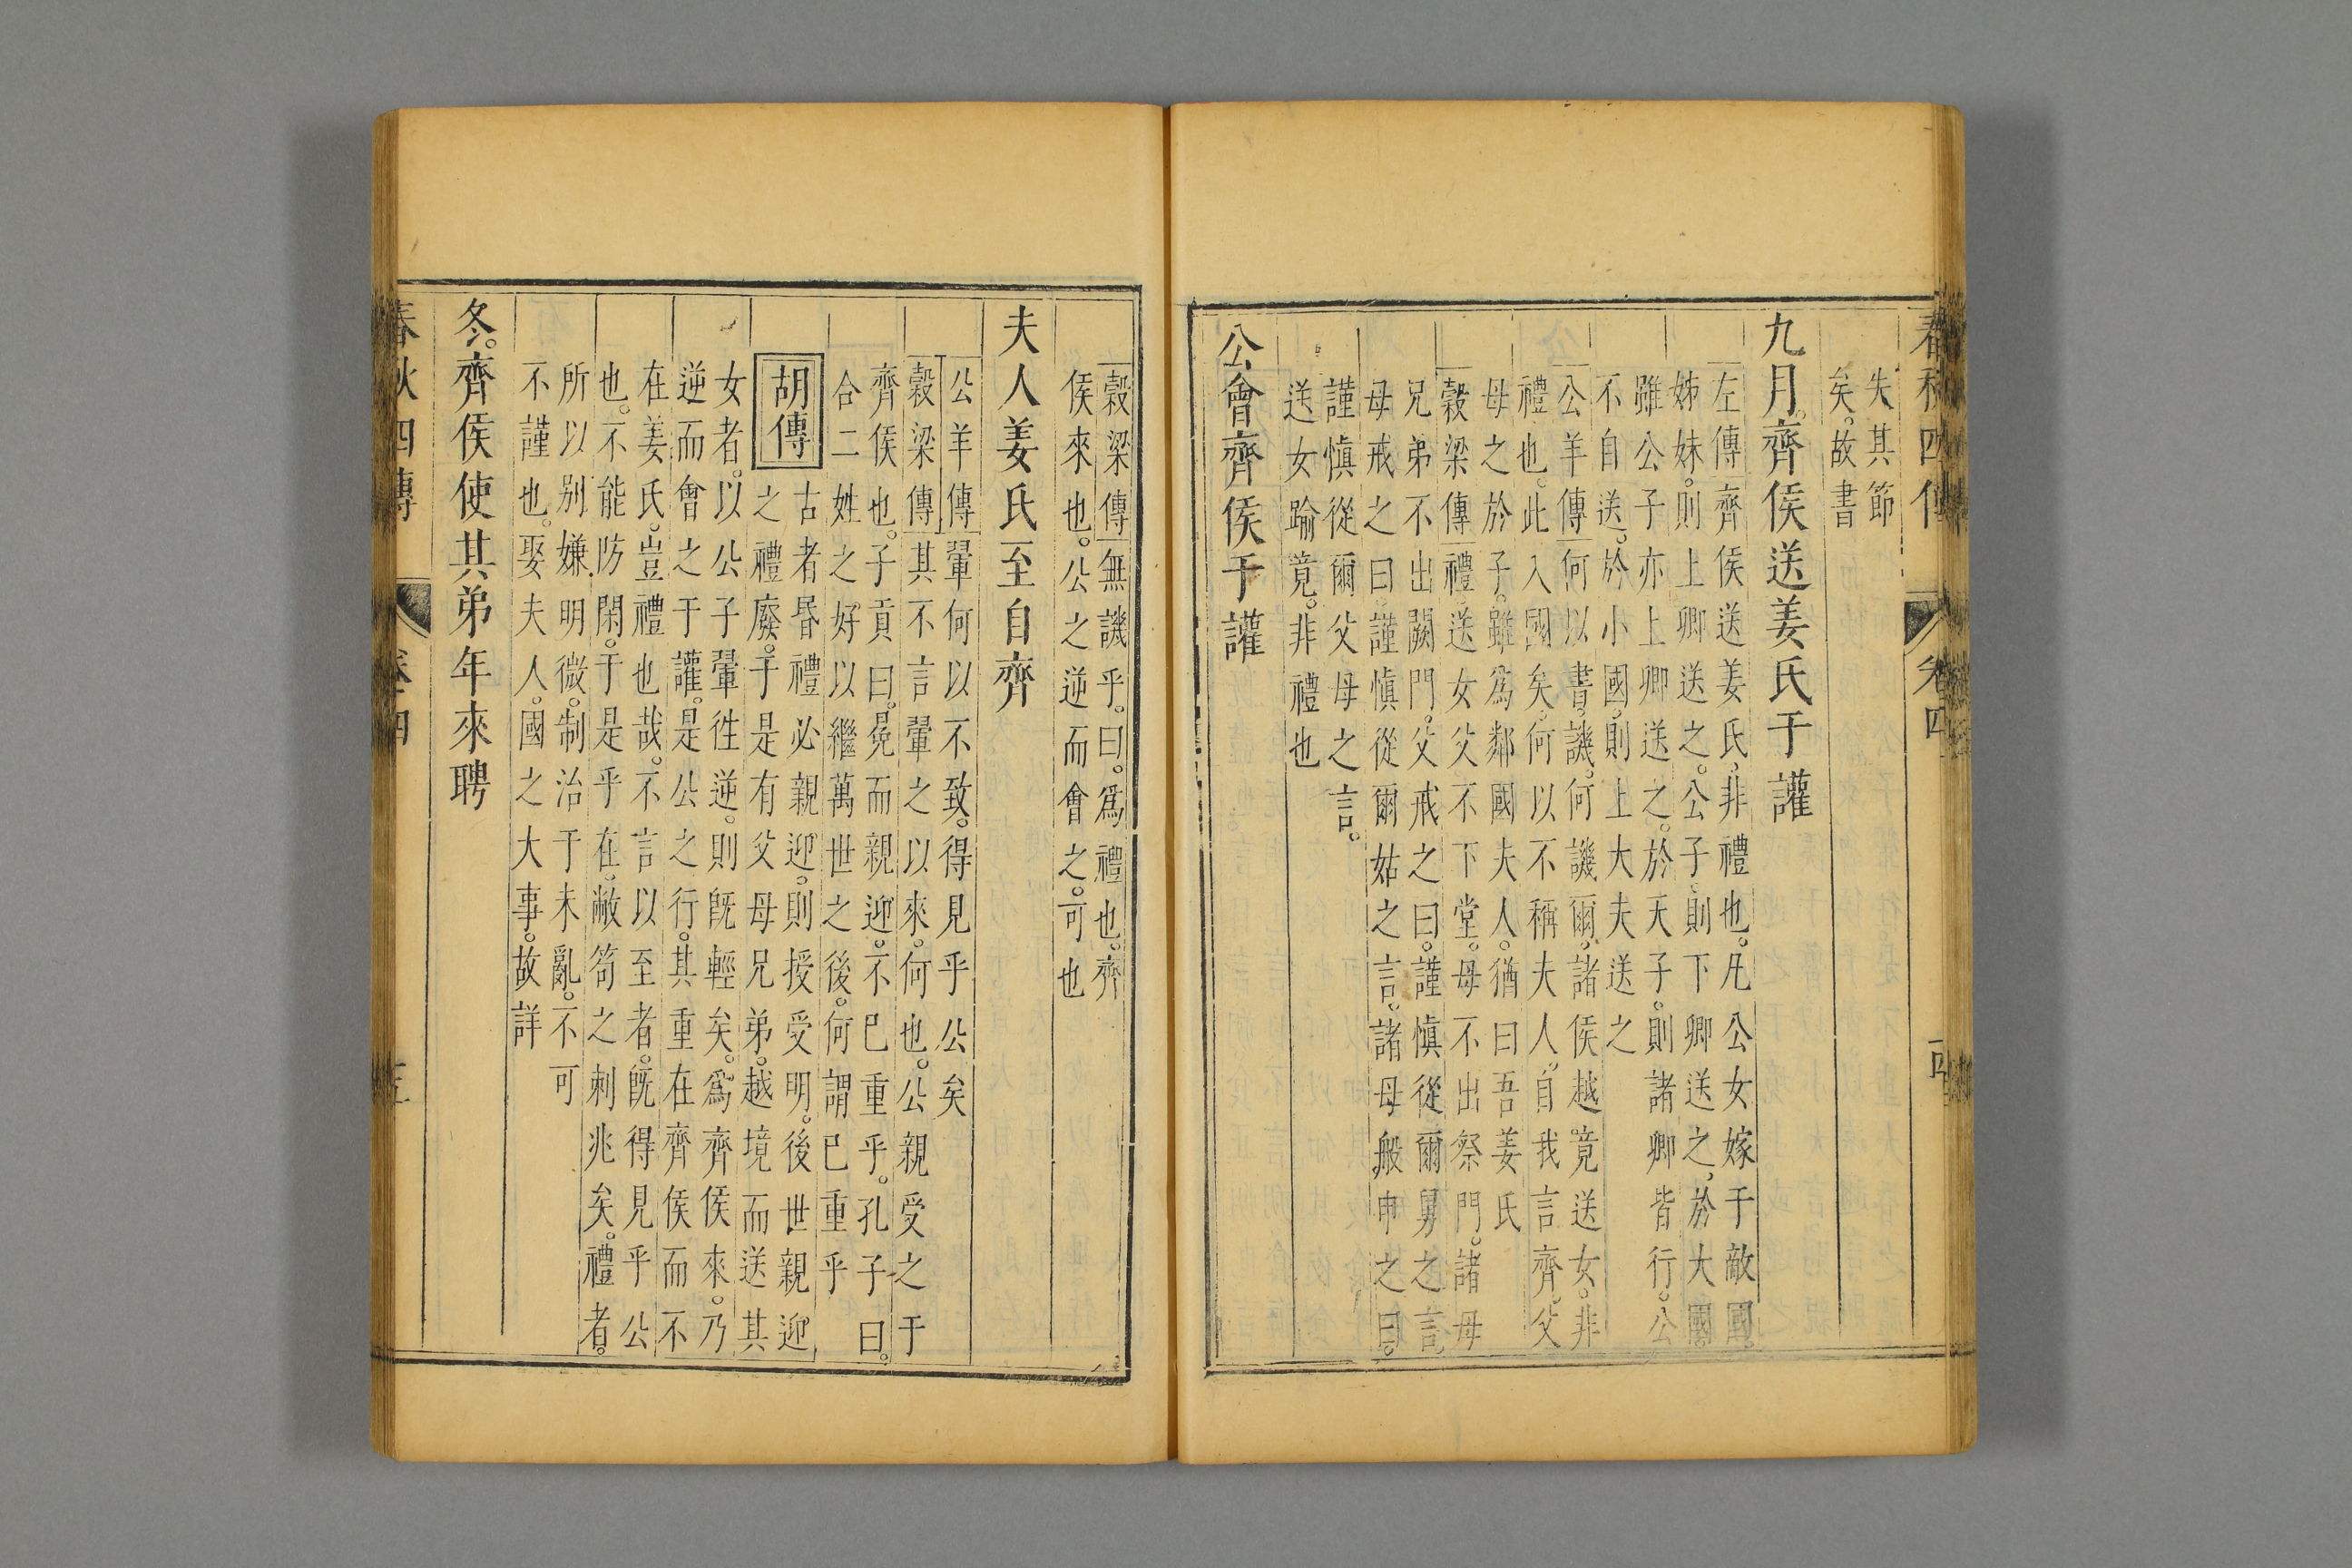 春秋四傳 卷四
失其節
矣。故書
九月。齊侯送姜氏于讙
左傳 齊侯送姜氏。非禮也。凡公女嫁于敵國。
姊妹。則上卿送之。公子。則下卿送之。於大國。
雖公子亦上卿送之。於天子。則諸卿皆行。公
不自送。於小國。則上大夫送之
公羊傳 何以書。譏。何譏爾。諸侯越竟送女。非
禮也。此入國矣。何以不稱夫人。自我言齊。父
母之於子。雖爲鄰國夫人。猶曰吾姜氏
穀梁傳 禮。送女父不下堂。母不出祭門。諸母
兄弟不出闕門。父戒之曰。謹愼從爾舅之言。
母戒之曰。謹愼從爾姑之言。諸母般申之曰。
謹愼從爾父母之言。
送女踰竟。非禮也
公會齊侯于讙
穀梁傳 無譏乎。曰。爲禮也。齊
侯來也。公之逆而會之。可也
夫人姜氏至自齊
公羊傳 翬何以不致。得見乎公矣
穀梁傳 其不言翬之以來。何也。公親受之于
齊侯也。子貢曰。冕而親迎。不已重乎。孔子曰。
合二姓之好以繼萬世之後。何謂已重乎
胡傳 古者昏禮必親迎。則授受明。後世親迎
之禮廢。于是有父母兄弟。越境而送其
女者。以公子翬往逆。則旣輕矣。爲齊侯來。乃
逆而會之于讙。是公之行。其重在齊侯而不
在姜氏。豈禮也哉。不言以至者。旣得見乎公
也。不能防閑。于是乎在。敝笱之刺兆矣。禮者。
所以别嫌明微。制治于未亂。不可
不謹也。娶夫人。國之大事。故詳
冬。齊侯使其弟年來聘
春秋四傳 卷四